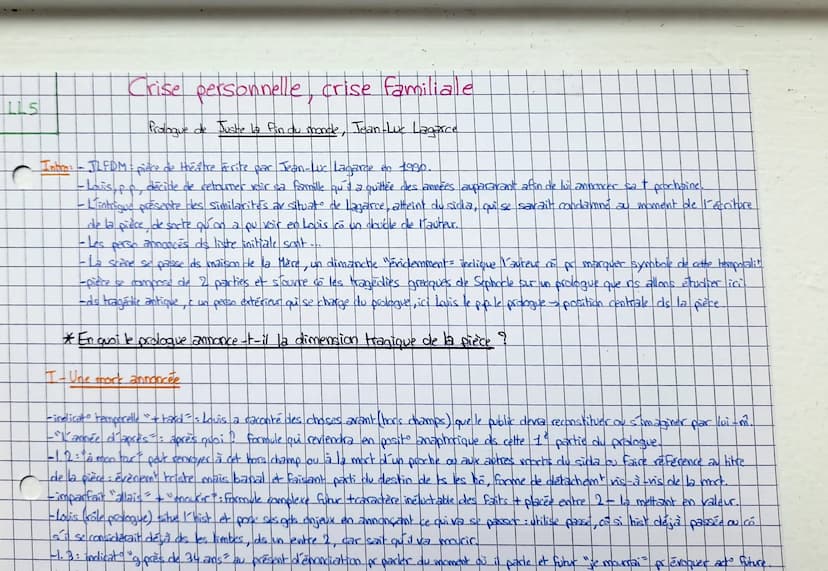 LL5
Crise personnelle, crise familiale
Prologue de Juste la fin du monde, Jean-Luc Lagarce
Intro: - JLFDM: pièce de théâtre écrite par Jean-Luc Lagarce en 1990.
- Louis, p.p, décide de retourner voir sa famille qu'il a quittée des années auparavant afin de lui annoncer sa † prochaine.
- L'intrigue présente des similarités av situat° de Lagarce, atteint du sida, qui se savait condamné au moment de l'écriture
de la pièce, de sorte qu'on a pu voir en Louis co un double de l'auteur.
- Les perso annoncés ds liste initiale sont...
- La scène se passe ds maison de la Mère, un dimanche "évidemment" indique l'auteur co pr marquer symbole de cette temporalité
- pièce se compose de 2 parties et s'ouvre co les tragédies grecques de Sophocle sur un prologue que ns allons étudier ici
- ds tragédie antique, c un perso extérieur qui se charge du prologue, ici Louis le p.p le prologue → position centrale ds la pièce
* En quoi le prologue annonce-t-il la dimension tragique de la pièce ?
I - Une mort annoncée
- indicat° temporelle "+ tard": Louis a raconté des choses avant (hors champs) que le public devra reconstituer ou s'imaginer par lui-m̂.
- "L'année d'après": après quoi ? formule qui reviendra en posit° anaphorique ds cette 1e partie du prologue.
- l.2: "à mon tour" peut renvoyer à cet hors champ ou à la mort d'un proche ou aux autres morts du sida ou faire référence au titre
de la pièce: évènement triste mais banal et faisant parti du destin de ts les hô, forme de détachement vis-à-vis de la mort.
- imparfait "allais" + "mourir": formule complexe futur + caractère inéluctable des faits + placée entre 2 - la mettant en valeur.
- Louis (rôle prologue) situe l'hist et pose ses gds enjeux en annonçant ce qui va se passer: utilise passé, co si hist déjà passée ou co
s'il se considérait déjà ds les limbes, ds un entre 2, car sait qu'il va mourir.
- l.3: indicat° "près de 34 ans" au présent d'énonciation pr parler du moment où il parle et futur "je mourrai" pr évoquer act° future.